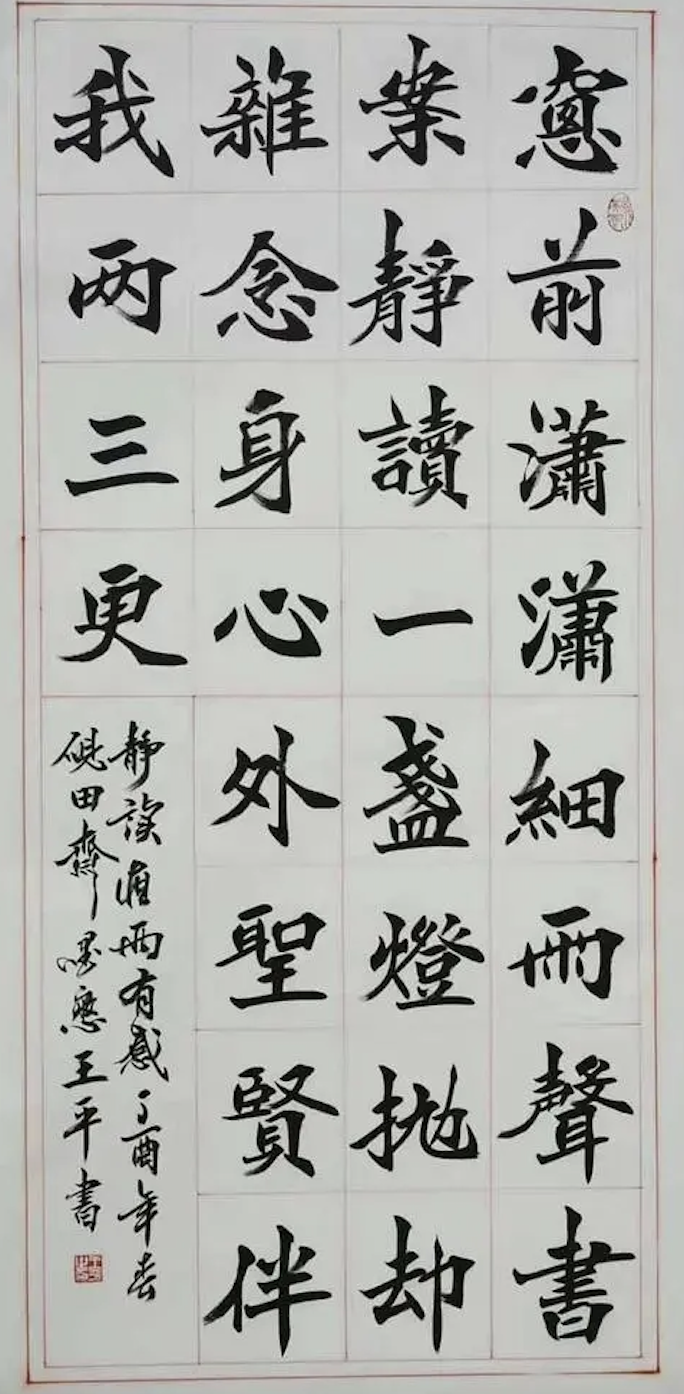 窻前瀟瀟細雨聲書
案靜讀一盞燈拋却
雜念身心外聖賢伴
我两三更
静读值雨有感丁酉年春
砚田斋墨憨王平書